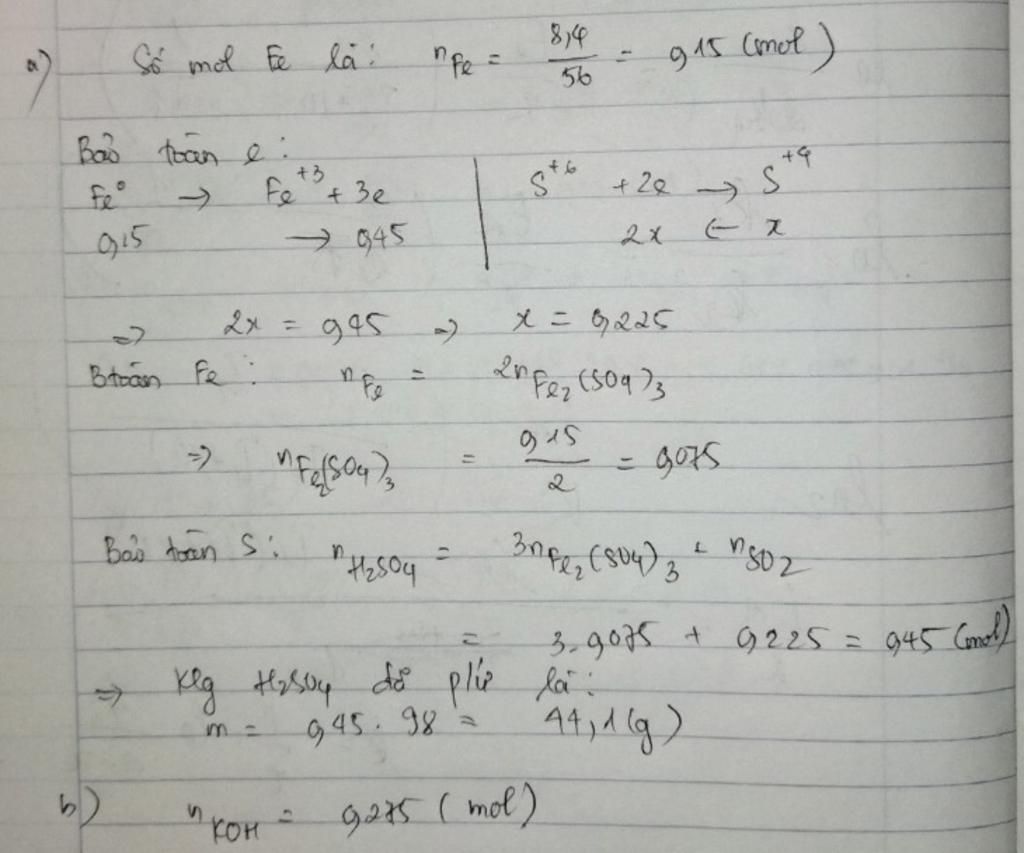 a) Số mol Fe là: nFe = 8,4/56 = 0,15 (mol)
Bảo toàn e:
Fe⁰ → Fe⁺³ + 3e | S⁺⁶ + 2e → S⁺⁴
0,15 → 0,45 | 2x ← x
=> 2x = 0,45 => x = 0,225
Btoàn Fe: nFe = 2nFe₂(SO₄)₃
=> nFe₂(SO₄)₃ = 0,15/2 = 0,075
Bảo toàn S: nH₂SO₄ = 3nFe₂(SO₄)₃ + nSO₂
= 3.0,075 + 0,225 = 0,45 (mol)
=> Klg H₂SO₄ đã p/ứ là:
m = 0,45.98 = 44,1(g)
b) nKOH = 0,275 (mol)